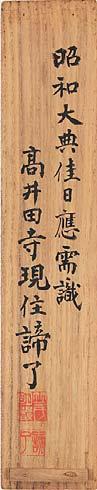 昭和大典佳日應需識
高井田寺現住諦了